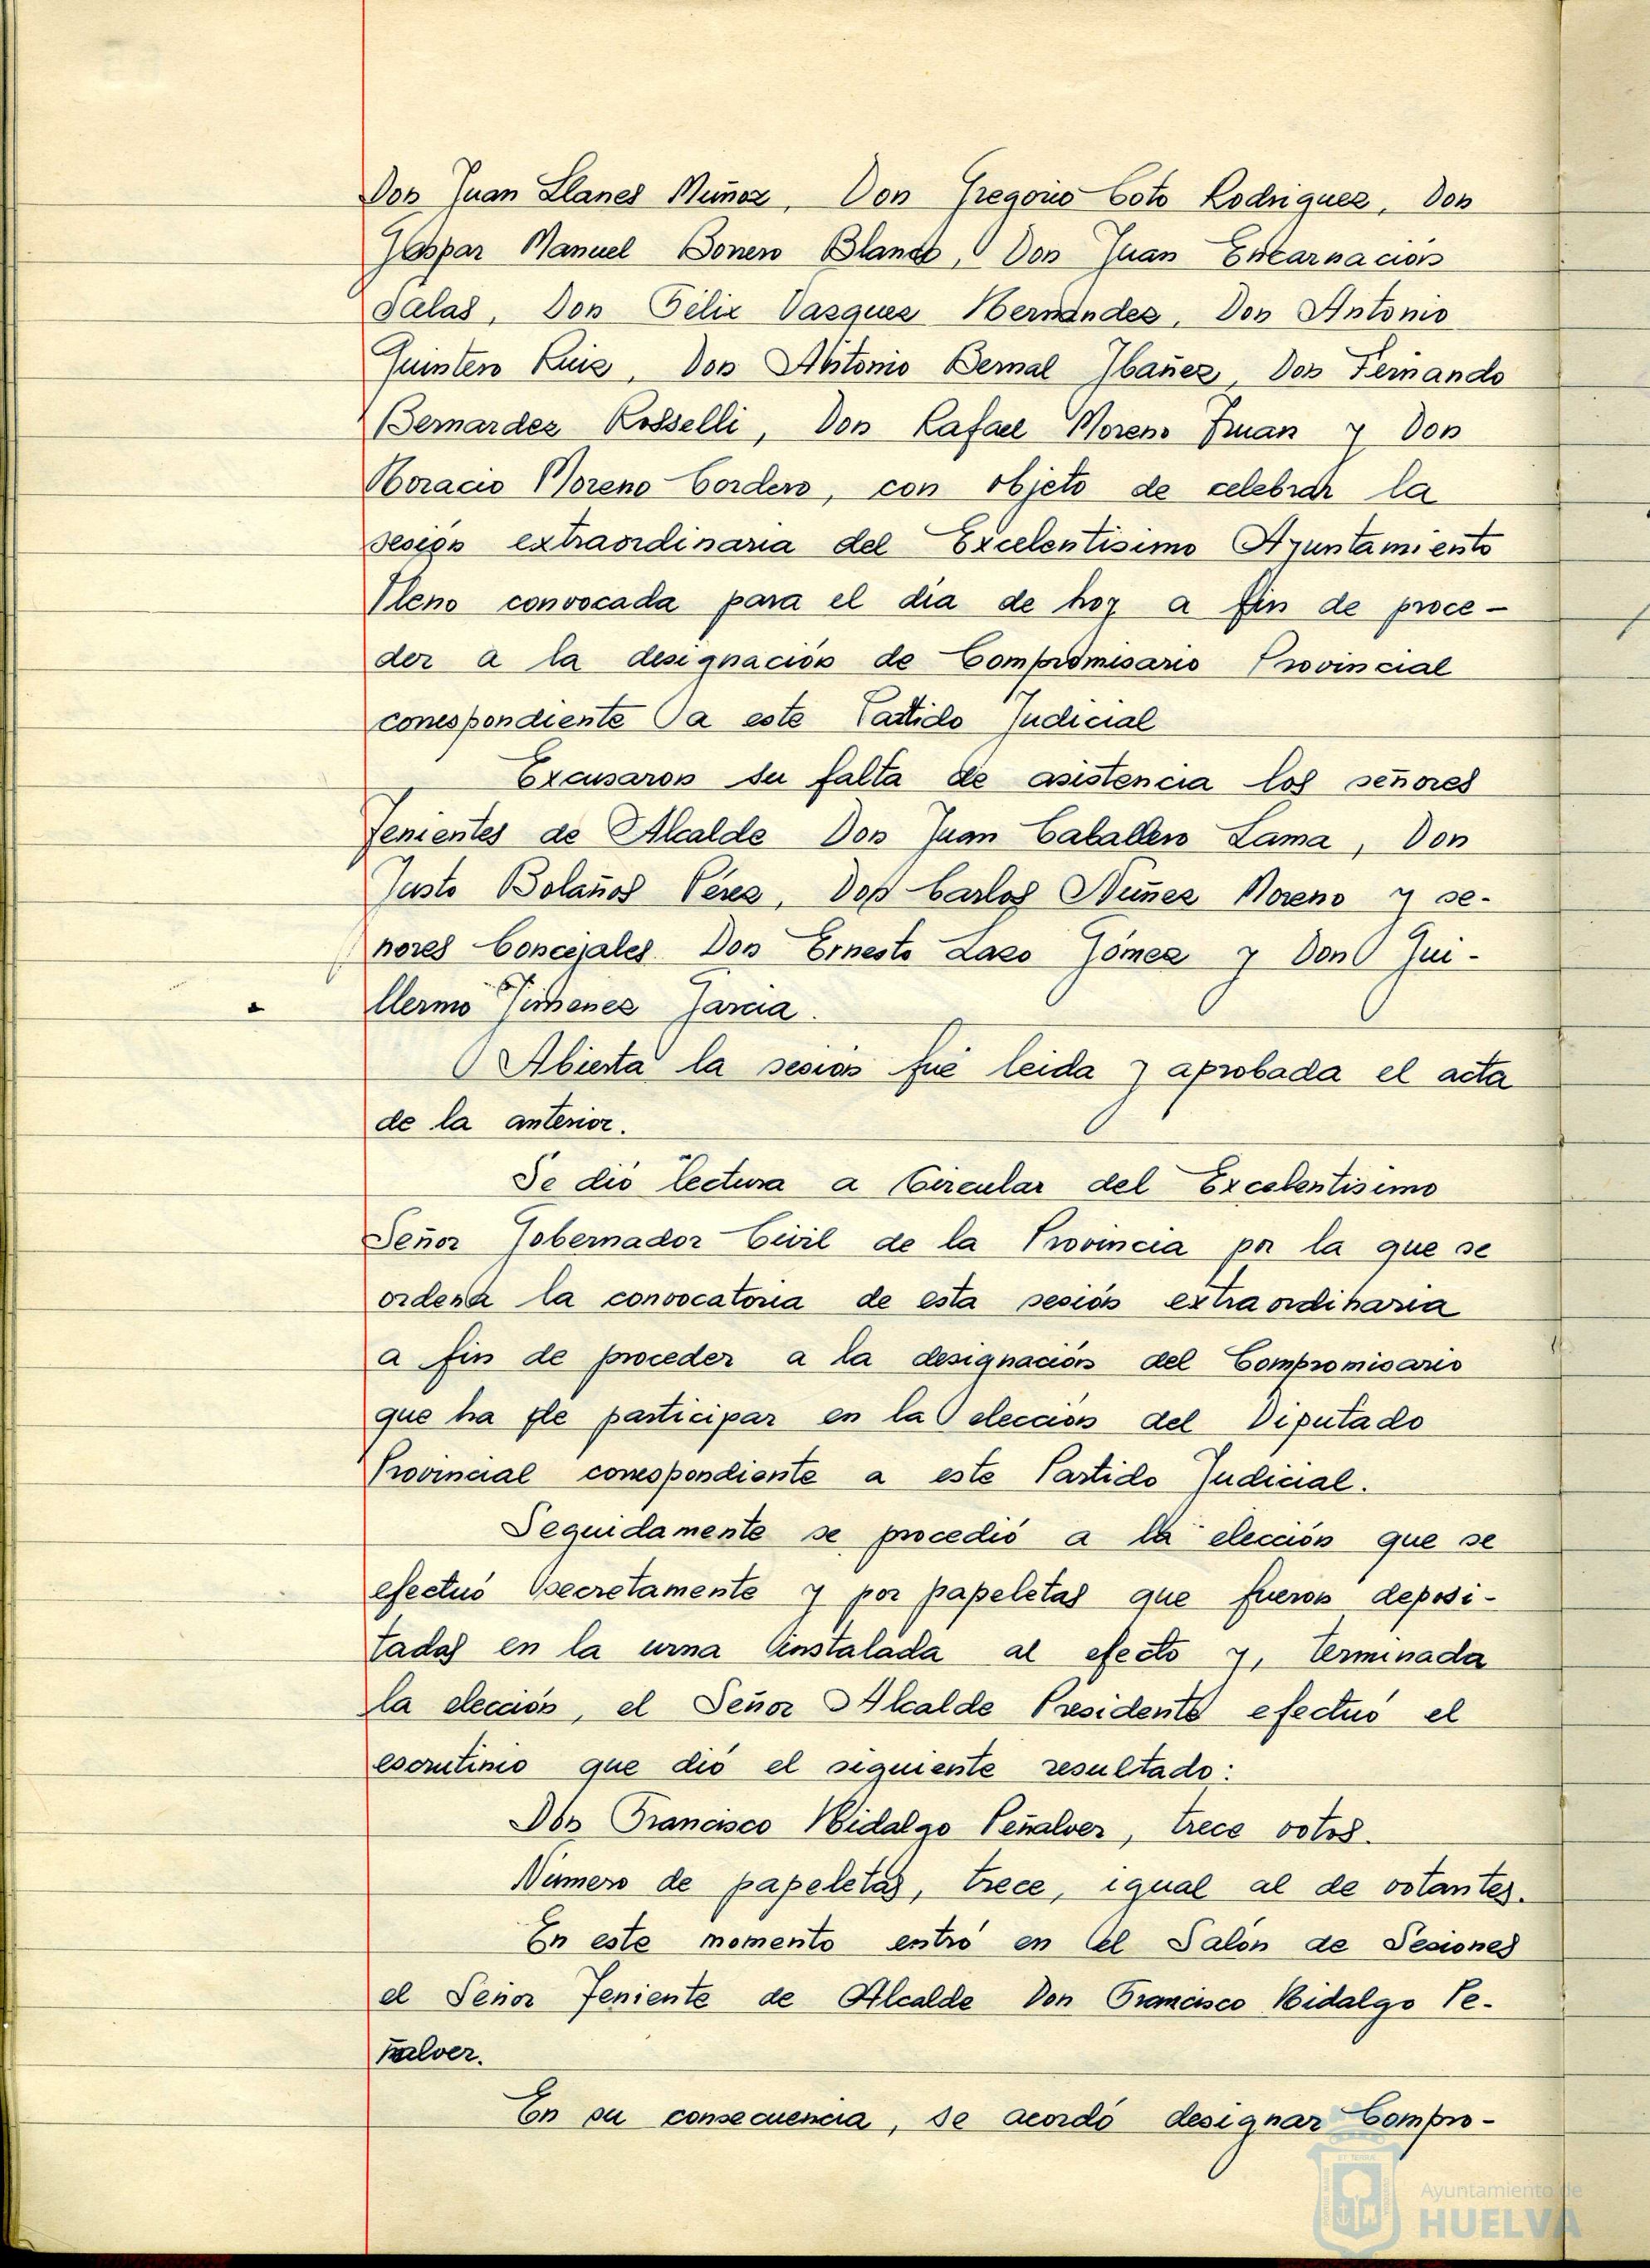 Don Juan Llanes Muñoz, Don Gregorio Coto Rodriguez, Don
Gaspar Manuel Bonero Blanco, Don Juan Encarnación
Salas, Don Félix Vazquez Hernández, Don Antonio
Quintero Ruiz, Don Antonio Bernal Ibañez, Don Fernando
Bernardez Rosselli, Don Rafael Moreno Fruan y Don
Horacio Moreno Cordero, con objeto de celebrar la
sesión extraordinaria del Excelentisimo Ayuntamiento
Pleno convocada para el dia de hoy a fin de proce-
der a la designación de Compromisario Provincial
correspondiente a este Partido Judicial
Excusaron su falta de asistencia los señores
Tenientes de Alcalde Don Juan Caballero Lama, Don
Justo Bolaños Pérez, Don Carlos Nuñez Moreno y se-
ñores Concejales Don Ernesto Lazo Gómez y Don Gui-
llermo Jimenez Garcia.
Abierta la sesión fué leida y aprobada el acta
de la anterior.
Se dió lectura a Circular del Excelentisimo
Señor Gobernador Civil de la Provincia por la que se
ordena la convocatoria de esta sesión extraordinaria
a fin de proceder a la designación del Compromisario
que ha de participar en la elección del Diputado
Provincial correspondiente a este Partido Judicial.
Seguidamente se procedió a la elección que se
efectuó secretamente y por papeletas que fueron deposi-
tadas en la urna instalada al efecto y, terminada
la elección, el Señor Alcalde Presidente efectuó el
escrutinio que dió el siguiente resultado:
Don Francisco Hidalgo Peñalver, trece votos.
Número de papeletas, trece, igual al de votantes.
En este momento entró en el Salón de Sesiones
el Señor Teniente de Alcalde Don Francisco Hidalgo Pe-
ñalver.
En su consecuencia, se acordó designar Compro-
Ayuntamiento de
HUELVA